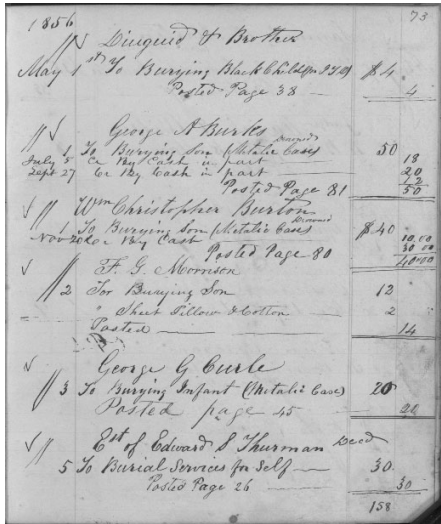 1856 73
Diuguid & Brother
May 1st To Burying Black Child $4
Posted Page 38 — 4
George A Burks
1 To Burying Son (Metalic Case) Drowned 50
July 5 Cr By Cash in part — 18
Sept 27 Cr By Cash in part — 20
12
Posted Page 81 50
Wm Christopher Burton
1 To Burying Son (Metalic Case) Drowned $40
Nov 20 Cr By Cash 10.00
30 00
Posted Page 80 40.00
F. G. Morrison
2 For Burying Son 12
" Sheet Pillow & Cotton — 2
Posted — 14
George G Curle
3 To Burying Infant (Metalic Case) 20
Posted page 45 — 20
Est of Edward S Thurman Decd
5 To Burial Services for Self — 30.
Posted Page 26 — 30
158